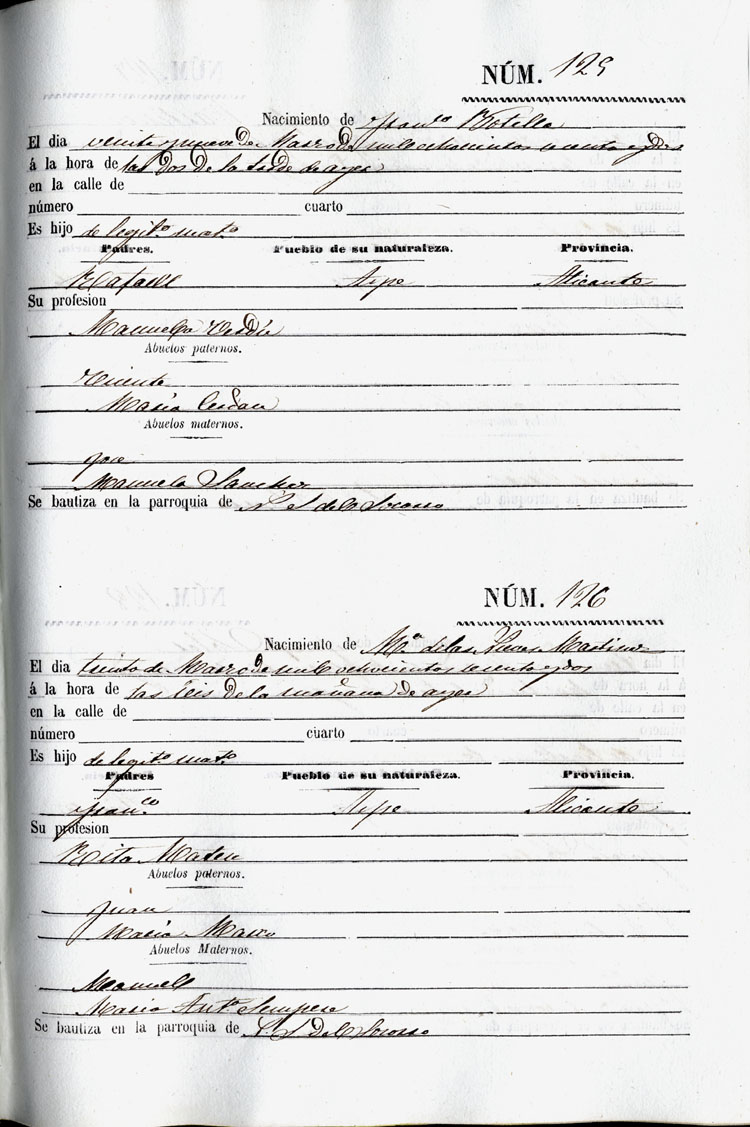 NÚM. 125
Nacimiento de Fran.co Botella
El dia veinte y nueve de Marzo de mil ochocientos setenta y dos
á la hora de las dos de la tarde de ayer
en la calle de
número cuarto
Es hijo de legit.o mat.o
Padres. Pueblo de su naturaleza. Provincia.
Rafaell Aspe Alicante
Su profesion
Manuela
Abuelos paternos.
Vicente
Maria Cerdan
Abuelos maternos.
Jose
Manuela Sanchez
Se bautiza en la parroquia de N. S. del Socorro
NÚM. 126
Nacimiento de M.a de las Nieves Martinez
El dia treinta de Marzo de mil ochocientos setenta y dos
á la hora de las seis de la mañana de ayer
en la calle de
número cuarto
Es hijo de legit.o mat.o
Padres Pueblo de su naturaleza. Provincia.
Fran.co Aspe Alicante
Su profesion
Rita Mateu
Abuelos paternos.
Juan
Maria
Abuelos Maternos.
Manuell
Maria Ant.a Sempere
Se bautiza en la parroquia de N. S. del Socorro